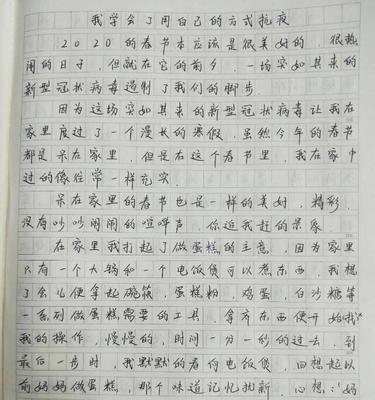 我学会了用自己的方式抗疫
2020的春节本应该是很美好的，很热
闹的日子，但就在它的前夕，一场突如其来的
新型冠状病毒遏制了我们的脚步。
因为这场突如其来的新型冠状病毒让我在
家里度过了一个漫长的寒假，虽然今年的春节
都是呆在家里，但是在这个春节里，我在家中
过的像往常一样充实。
呆在家里的春节也是一样的美好，精彩，
没有吵吵闹闹的喧哗声，你追我赶的景象。
在家里我打起了做蛋糕的主意，因为家里
只有一个大锅和一个电饭煲可以煮东西，我想
了会儿便拿起碗筷，蛋糕粉，鸡蛋，白沙糖等
一系列做蛋糕需要的工具，拿齐东西便开始我
我的操作，慢慢的，时间一分一秒的过去，到
最后一步时，我默默的看向电饭煲，回想起以
前妈妈做蛋糕，那个味道记忆犹新，心想：“妈